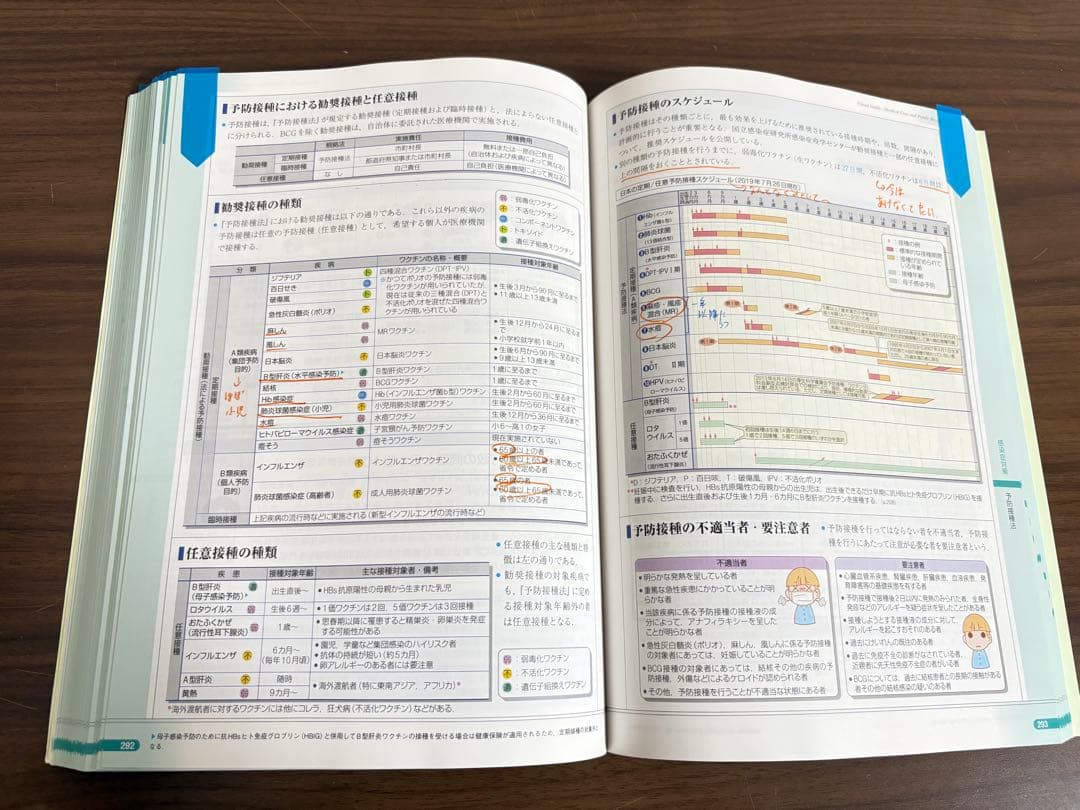 予防接種における勧奨接種と任意接種
• 予防接種は、『予防接種法』が規定する勧奨接種(定期接種および臨時接種)と、法によらない任意接種と
に分けられる。BCGを除く勧奨接種は、自治体に委託された医療機関で実施される。
根拠法 実施責任 接種費用
勧奨接種 定期接種 予防接種法 市町村長 無料または一部自己負担
臨時接種 都道府県知事または市町村長 (自治体および疾病によって異なる)
任意接種 なし 自己責任 自己負担(医療機関によって異なる)
勧奨接種の種類
• 『予防接種法』における勧奨接種は以下の通りである。これら以外の疾病の
予防接種は任意の予防接種(任意接種)として、希望する個人が医療機関
で接種する。
弱:弱毒化ワクチン
不:不活化ワクチン
コ:コンポーネントワクチン
ト:トキソイド
遺:遺伝子組換えワクチン
分類 疾病 ワクチンの名称・概要 接種対象年齢
勧奨接種(法による予防接種)
定期接種
A類疾病
(集団予防
目的)
↓
ほぼ
小児
ジフテリア ト
百日せき 不
破傷風 ト
急性灰白髄炎(ポリオ) 不
四種混合ワクチン(DPT-IPV)
※かつてポリオの予防接種には弱毒
化ワクチンが用いられていたが、
現在は従来の三種混合(DPT)と
不活化ポリオを混ぜた四種混合ワ
クチンが用いられている
• 生後3月から90月に至るまで
• 11歳以上13歳未満
麻しん 弱
風しん 弱
MRワクチン
• 生後12月から24月に至るまで
• 小学校就学前1年以内
日本脳炎 不 日本脳炎ワクチン
• 生後6月から90月に至るまで
• 9歳以上13歳未満
B型肝炎(水平感染予防) 遺 B型肝炎ワクチン 1歳に至るまで
結核 弱 BCGワクチン 1歳に至るまで
Hib感染症 コ Hib(インフルエンザ菌b型)ワクチン 生後2月から60月に至るまで
肺炎球菌感染症(小児) 不 小児用肺炎球菌ワクチン 生後2月から60月に至るまで
水痘 弱 水痘ワクチン 生後12月から36月に至るまで
ヒトパピローマウイルス感染症 遺 子宮頸がん予防ワクチン 小6〜高1の女子
痘そう 弱 痘そうワクチン 現在実施されていない
B類疾病
(個人予防
目的)
インフルエンザ 不 インフルエンザワクチン
• 65歳以上の者
• 60歳以上65歳未満であって、
省令で定める者
肺炎球菌感染症(高齢者) 不 成人用肺炎球菌ワクチン
• 65歳の者
• 60歳以上65歳未満であって、
省令で定める者
臨時接種 上記疾病の流行時などに実施される(新型インフルエンザの流行時など)
任意接種の種類
疾患 接種対象年齢 主な接種対象者・備考
任意接種
B型肝炎 遺
(母子感染予防) 出生直後〜 • HBs抗原陽性の母親から生まれた乳児
ロタウイルス 弱 生後6週〜 • 1価ワクチンは2回、5価ワクチンは3回接種
おたふくかぜ 弱
(流行性耳下腺炎) 1歳〜
• 思春期以降に罹患すると精巣炎・卵巣炎を発症
する可能性がある
インフルエンザ 不 6カ月〜
(毎年10月頃)
• 園児、学童など集団感染のハイリスク者
• 抗体の持続が短い(約5カ月)
• 卵アレルギーのある者には要注意
A型肝炎 不 随時
黄熱 弱 9カ月〜
• 海外渡航者(特に東南アジア、アフリカ)*
*海外渡航者に対するワクチンには他にコレラ、狂犬病(不活化ワクチン)などがある。
• 任意接種の主な種類と特
徴は左の通りである。
• 勧奨接種の対象疾病で
も、『予防接種法』に定め
る接種対象年齢外の者
は任意接種となる。
弱:弱毒化ワクチン
不:不活化ワクチン
遺:遺伝子組換えワクチン
▶母子感染予防のために抗HBsヒト免疫グロブリン(HBIG)と併用してB型肝炎ワクチンの接種を受ける場合は健康保険が適用されるため、定期接種の対象外と
なる。
292
予防接種のスケジュール
• 予防接種はその種類ごとに、最も効果を上げるために推奨されている接種時期や、回数、間隔があり、
計画的に行うことが重要となる。国立感染症研究所感染症疫学センターが勧奨接種と一部の任意接種に
ついて、推奨スケジュールを公開している。
• 別の種類の予防接種を行うまでに、弱毒化ワクチン(生ワクチン)は27日間、不活化ワクチンは6日間以
上の間隔をおくこととされている。
今は
あけなくて良い
日本の定期/任意予防接種スケジュール(2019年7月26日現在)
定期接種(A類疾病)
予防接種法
❶Hib(インフル
エンザ菌b型)
❷肺炎球菌
(13価結合型)
❸B型肝炎
(水平感染予防)
❹DPT-IPV Ⅰ期
❺BCG
❻麻疹・風疹
混合(MR)
❼水痘
一年
以降に
❽日本脳炎
❾DT Ⅱ期
❿HPV(ヒトパピ
ローマウイルス)
第1期
第2期
接種の例
標準的な接種期間
接種が定められて
いる年齢
接種年齢
母子感染予防
任意接種
B型肝炎
(母子感染予防)
ロタ
ウイルス
1価
5価
初回接種は生後14週6日までに行う
1価で2回接種、5価で3回接種のいずれかを選択
おたふくかぜ
(流行性耳下腺炎)
*D:ジフテリア、P:百日咳、T:破傷風、IPV:不活化ポリオ
**妊娠中に検査を行い、HBs抗原陽性の母親からの出生児は、出生後できるだけ早期に抗HBsヒト免疫グロブリン(HBIG)を接
種する。さらに出生直後および生後1カ月・6カ月にB型肝炎ワクチンを接種する。
予防接種の不適当者・要注意者
• 予防接種を行ってはならない者を不適当者、予防接
種を行うにあたって注意が必要な者を要注意者という。
不適当者
• 明らかな発熱を呈している者
• 重篤な急性疾患にかかっていることが明
らかな者
• 当該疾病に係る予防接種の接種液の成
分によって、アナフィラキシーを呈した
ことが明らかな者
• 急性灰白髄炎(ポリオ)、麻しん、風しんに係る予防接種
の対象者にあっては、妊娠していることが明らかな者
• BCG接種の対象者にあっては、結核その他の疾病の予
防接種、外傷などによるケロイドが認められる者
• その他、予防接種を行うことが不適当な状態にある者
要注意者
• 心臓血管系疾患、腎臓疾患、肝臓疾患、血液疾患、発
育障害等の基礎疾患を有する者
• 予防接種で接種後2日以内に発熱のみられた者、全身性
発疹などのアレルギーを疑う症状を呈したことがある者
• 接種しようとする接種液の成分に対して、
アレルギーを起こすおそれのある者
• 過去にけいれんの既往のある者
• 過去に免疫不全の診断がなされている者、
近親者に先天性免疫不全症の者がいる者
• BCGについては、過去に結核患者との長期の接触がある
者その他の結核感染の疑いのある者
感染症対策
予防接種法
293